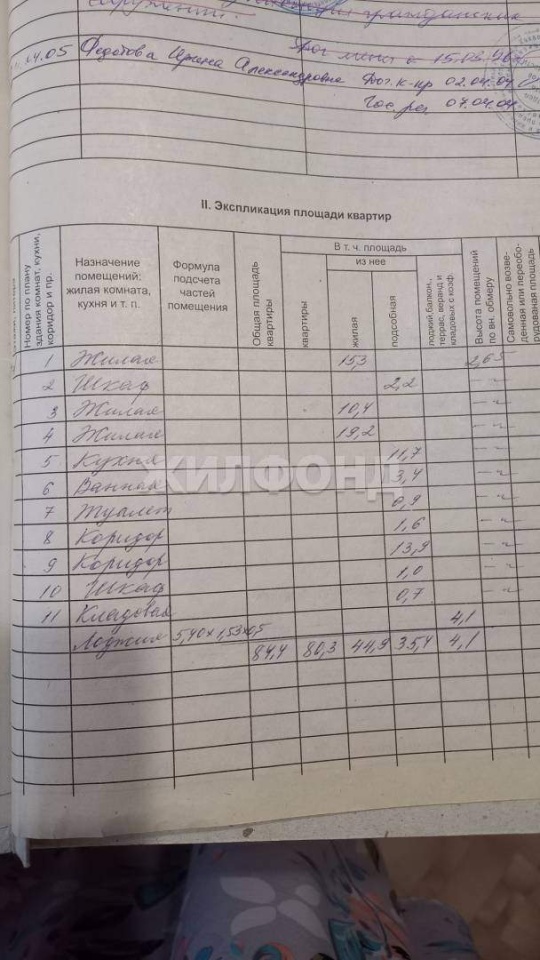 сооружений.
гражданских
04.05 Федотова Ирина Александровна Дог. к-пр 02.04.04
Гос.рег 07.04.04
II. Экспликация площади квартир
Номер по плану здания комнат, кухни, коридор и пр.
Назначение помещений: жилая комната, кухня и т. п.
Формула подсчета частей помещения
Общая площадь квартиры
В т. ч. площадь
квартиры
из нее
жилая
подсобная
лоджий балкон., террас, веранд и кладовых с коэф.
Высота помещений по вн. обмеру
Самовольно возведенная или переоборудованная площадь
1 Жилая 15,3 2,65
2 Шкаф 2,2 -"-
3 Жилая 10,4 -"-
4 Жилая 19,2 -"-
5 Кухня 11,7 -"-
6 Ванная 3,4 -"-
7 Туалет 0,9 -"-
8 Коридор 1,6 -"-
9 Коридор 13,9 -"-
10 Шкаф 1,0 -"-
11 Кладовая 0,7
Лоджия 5,40 x 1,53 x 0,5 4,1
84,4 80,3 44,9 35,4 4,1
ЖИЛФОНД